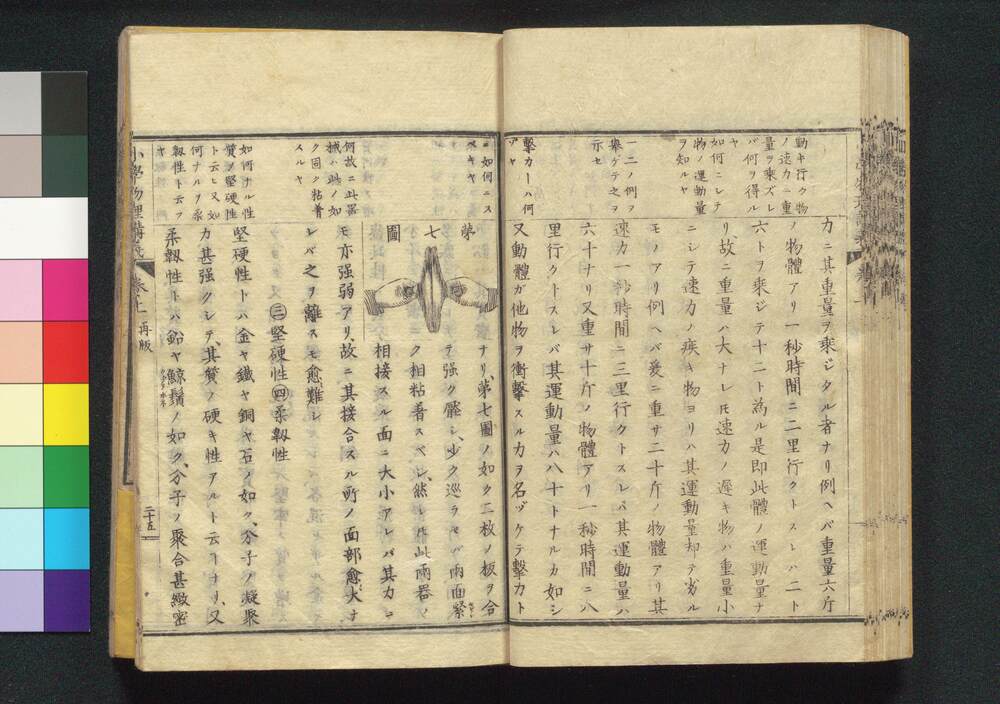 動キ行ク物
ノ速力ニ重
量ヲ乗ズレ
バ何ヲ得ル
ヤ
如何ニシテ
物ノ運動量
ヲ知ルヤ
一二ノ例ヲ
擧ゲテ之ヲ
示セ
撃力トハ何
ゾヤ
力ニ其重量ヲ乗ジタル者ナリ例ヘバ重量六斤
ノ物體アリ一秒時間ニ二里行クトスレハ二ト
六トヲ乗ジテ十二ト為ル是即此體ノ運動量ナ
リ、故ニ重量ハ大ナレ𪜈速力ノ遅キ物ハ重量小
ニシテ速力ノ疾キ物ヨリハ其運動量却テ劣ル
モノアリ例ヘバ爰ニ重サ二十斤ノ物體アリ其
速力一秒時間ニ三里行クトスレバ其運動量ハ
六十ナリ又重サ十斤ノ物體アリ一秒時間ニ八
里行クトスレバ其運動量ハ八十トナルカ如シ
又動體ガ他物ヲ衝撃スル力ヲ名ヅケテ撃力ト
ニ如何ニス
ベキヤ
何故ニ此器
械ハ此ノ如
ク固ク粘着
スルヤ
如何ナル性
質ヲ堅硬性
ト云ヒ又如
何ナルヲ柔
靱性ト云フ
ヤ
ナリ、第七圖ノ如ク二枚ノ板ヲ合
テ強ク髎シ、少ク巡ラセバ兩面緊
ク相粘着スベシ、然レ𪜈此兩器ノ
相接スル面ニ大小アレバ其力ニ
第七圖
モ亦强弱アリ、故ニ其接合スル所ノ面部愈大ナ
レバ之ヲ離スモ愈難シ
㊂堅硬性㊃柔靱性
堅硬性トハ金ヤ鐵ヤ銅ヤ石ノ如ク、分子ノ凝聚
力甚强クシテ、其質ノ硬キ性アルト云フヿナリ、又
柔靱性トハ鉛ヤ鯨鬚ノ如ク、分子ノ聚合甚緻密
小學物理講義
卷ノ一
再版
二十五